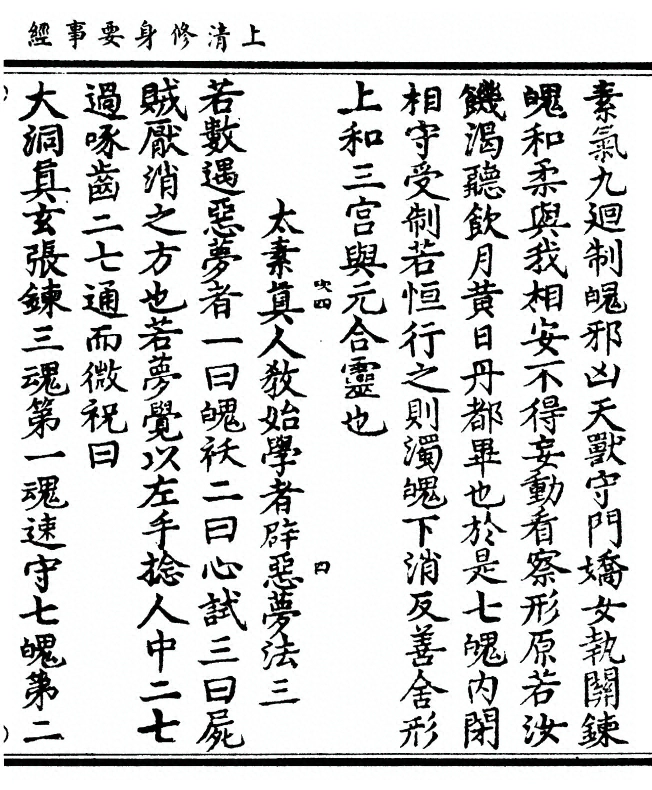 上清修身要事經
素氣九迴制魄邪凶天獸守門嬌女執關鍊
魄和柔與我相安不得妄動看察形原若汝
饑渴聽飲月黃日丹都畢也於是七魄內閉
相守受制若恒行之則濁魄下消反善舍形
上和三宮與元合靈也
太素眞人敎始學者辟惡夢法三
若數遇惡夢者一曰魄祅二曰心試三曰屍
賊厭消之方也若夢覺以左手捻人中二七
過啄齒二七通而微祝曰
大洞眞玄張鍊三魂第一魂速守七魄第二